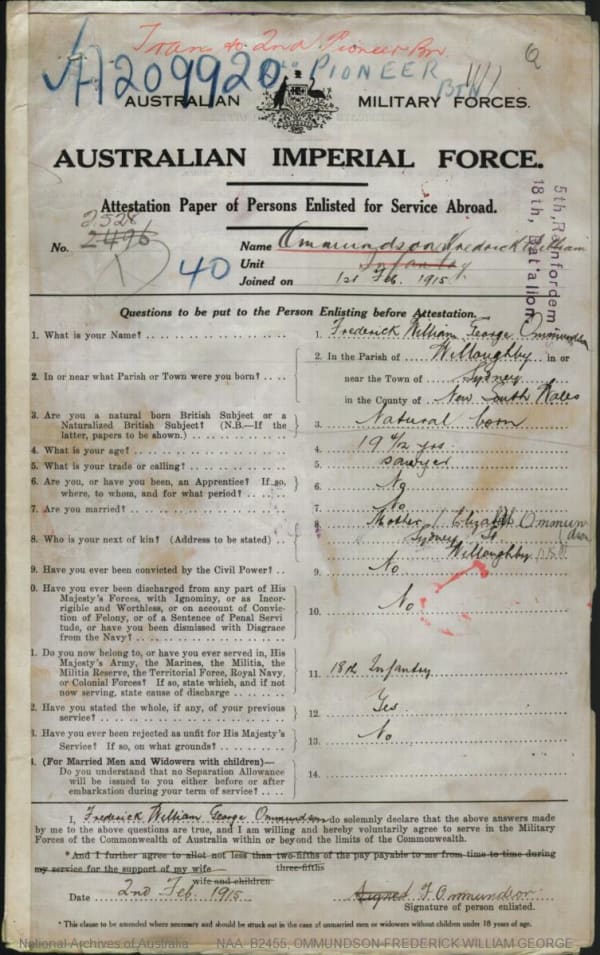 Trans to 2nd Pioneer Bn.
A209920 PIONEER
BTN
AUSTRALIAN MILITARY FORCES.
AUSTRALIAN IMPERIAL FORCE.
Attestation Paper of Persons Enlisted for Service Abroad.
5th, Reinforcdem
18th, Bat'alion
2528
No. 2496
40
Name Ommundson Frederick William
Unit Infantry
Joined on 1st Feb. 1915
Questions to be put to the Person Enlisting before Attestation.
1. What is your Name? 1. Frederick William George Ommundson
2. In or near what Parish or Town were you born? 2. In the Parish of Willoughby in or
near the Town of Sydney
in the County of New South Wales
3. Are you a natural born British Subject or a
Naturalized British Subject? (N.B.—If the
latter, papers to be shown.) 3. Natural born
4. What is your age? 4. 19 4/12 yrs.
5. What is your trade or calling? 5. Sawyer
6. Are you, or have you been, an Apprentice? If so,
where, to whom, and for what period? 6. No
7. Are you married? 7. No
8. Who is your next of kin? (Address to be stated) 8. Mother Elizabeth Ommundson
Sydney St
Willoughby
9. Have you ever been convicted by the Civil Power? 9. No
0. Have you ever been discharged from any part of His
Majesty's Forces, with Ignominy, or as Incor-
rigible and Worthless, or on account of Convic-
tion of Felony, or of a Sentence of Penal Servi-
tude, or have you been dismissed with Disgrace
from the Navy? 10. No
1. Do you now belong to, or have you ever served in, His
Majesty's Army, the Marines, the Militia, the
Militia Reserve, the Territorial Force, Royal Navy,
or Colonial Forces? If so, state which, and if not
now serving, state cause of discharge 11. 18th Infantry
2. Have you stated the whole, if any, of your previous
service? 12. Yes
3. Have you ever been rejected as unfit for His Majesty's
Service? If so, on what grounds? 13. No
4. (For Married Men and Widowers with children)—
Do you understand that no Separation Allowance
will be issued to you either before or after
embarkation during your term of service? 14.
I, Frederick William George Ommundson do solemnly declare that the above answers made
by me to the above questions are true, and I am willing and hereby voluntarily agree to serve in the Military
Forces of the Commonwealth of Australia within or beyond the limits of the Commonwealth.
* And I further agree to allot not less than two-fifths of the pay payable to me from time to time during
three-fifths
my service for the support of my wife
wife and children
Date 2nd Feb. 1915 Signed F Ommundson
Signature of person enlisted.
* This clause to be amended where necessary and should be struck out in the case of unmarried men or widowers without children under 18 years of age.
National Archives of Australia NAA: B2455, OMMUNDSON FREDERICK WILLIAM GEORGE